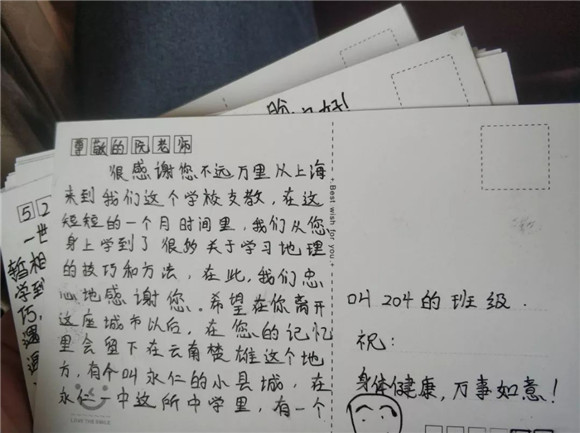 尊敬的阮老师
很感谢您不远万里从上海
来到我们这个学校支教，在这
短短的一个月时间里，我们从您
身上学到了很多关于学习地理
的技巧和方法，在此，我们忠
心地感谢您。希望在你离开
这座城市以后，在您的记忆
里会留下在云南楚雄这个地
方，有个叫永仁的小县城，在
永仁一中这所中学里，有一个
Best wish for you
叫204的班级.
祝：
身体健康，万事如意！
52
一世
暂相
学到
巧，
遇